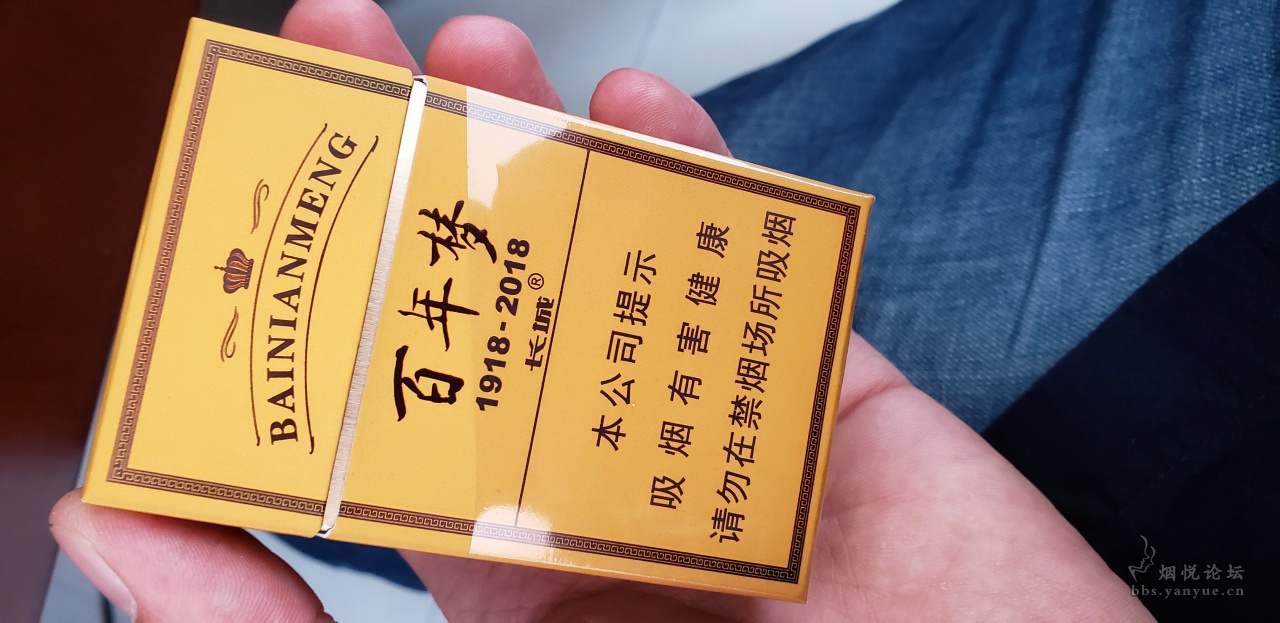 BAINIANMENG
百年梦
1918-2018
长城®
本公司提示
吸烟有害健康
请勿在禁烟场所吸烟
烟悦论坛
bbs.yanyue.cn